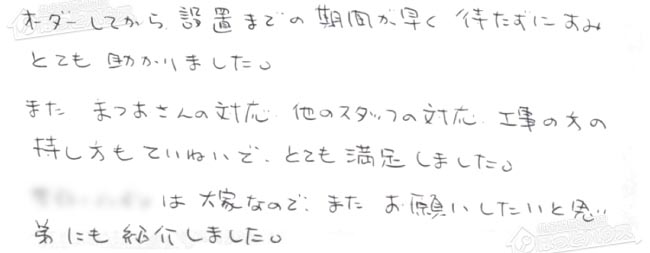 オーダーしてから、設置までの期間が早く 待たずにすみ
とても 助かりました。
また まつおさんの対応、他のスタッフの対応、工事の方の
接し方もていねいで、とても満足しました。
は大家なので、また お願いしたいと思い
弟にも紹介しました。